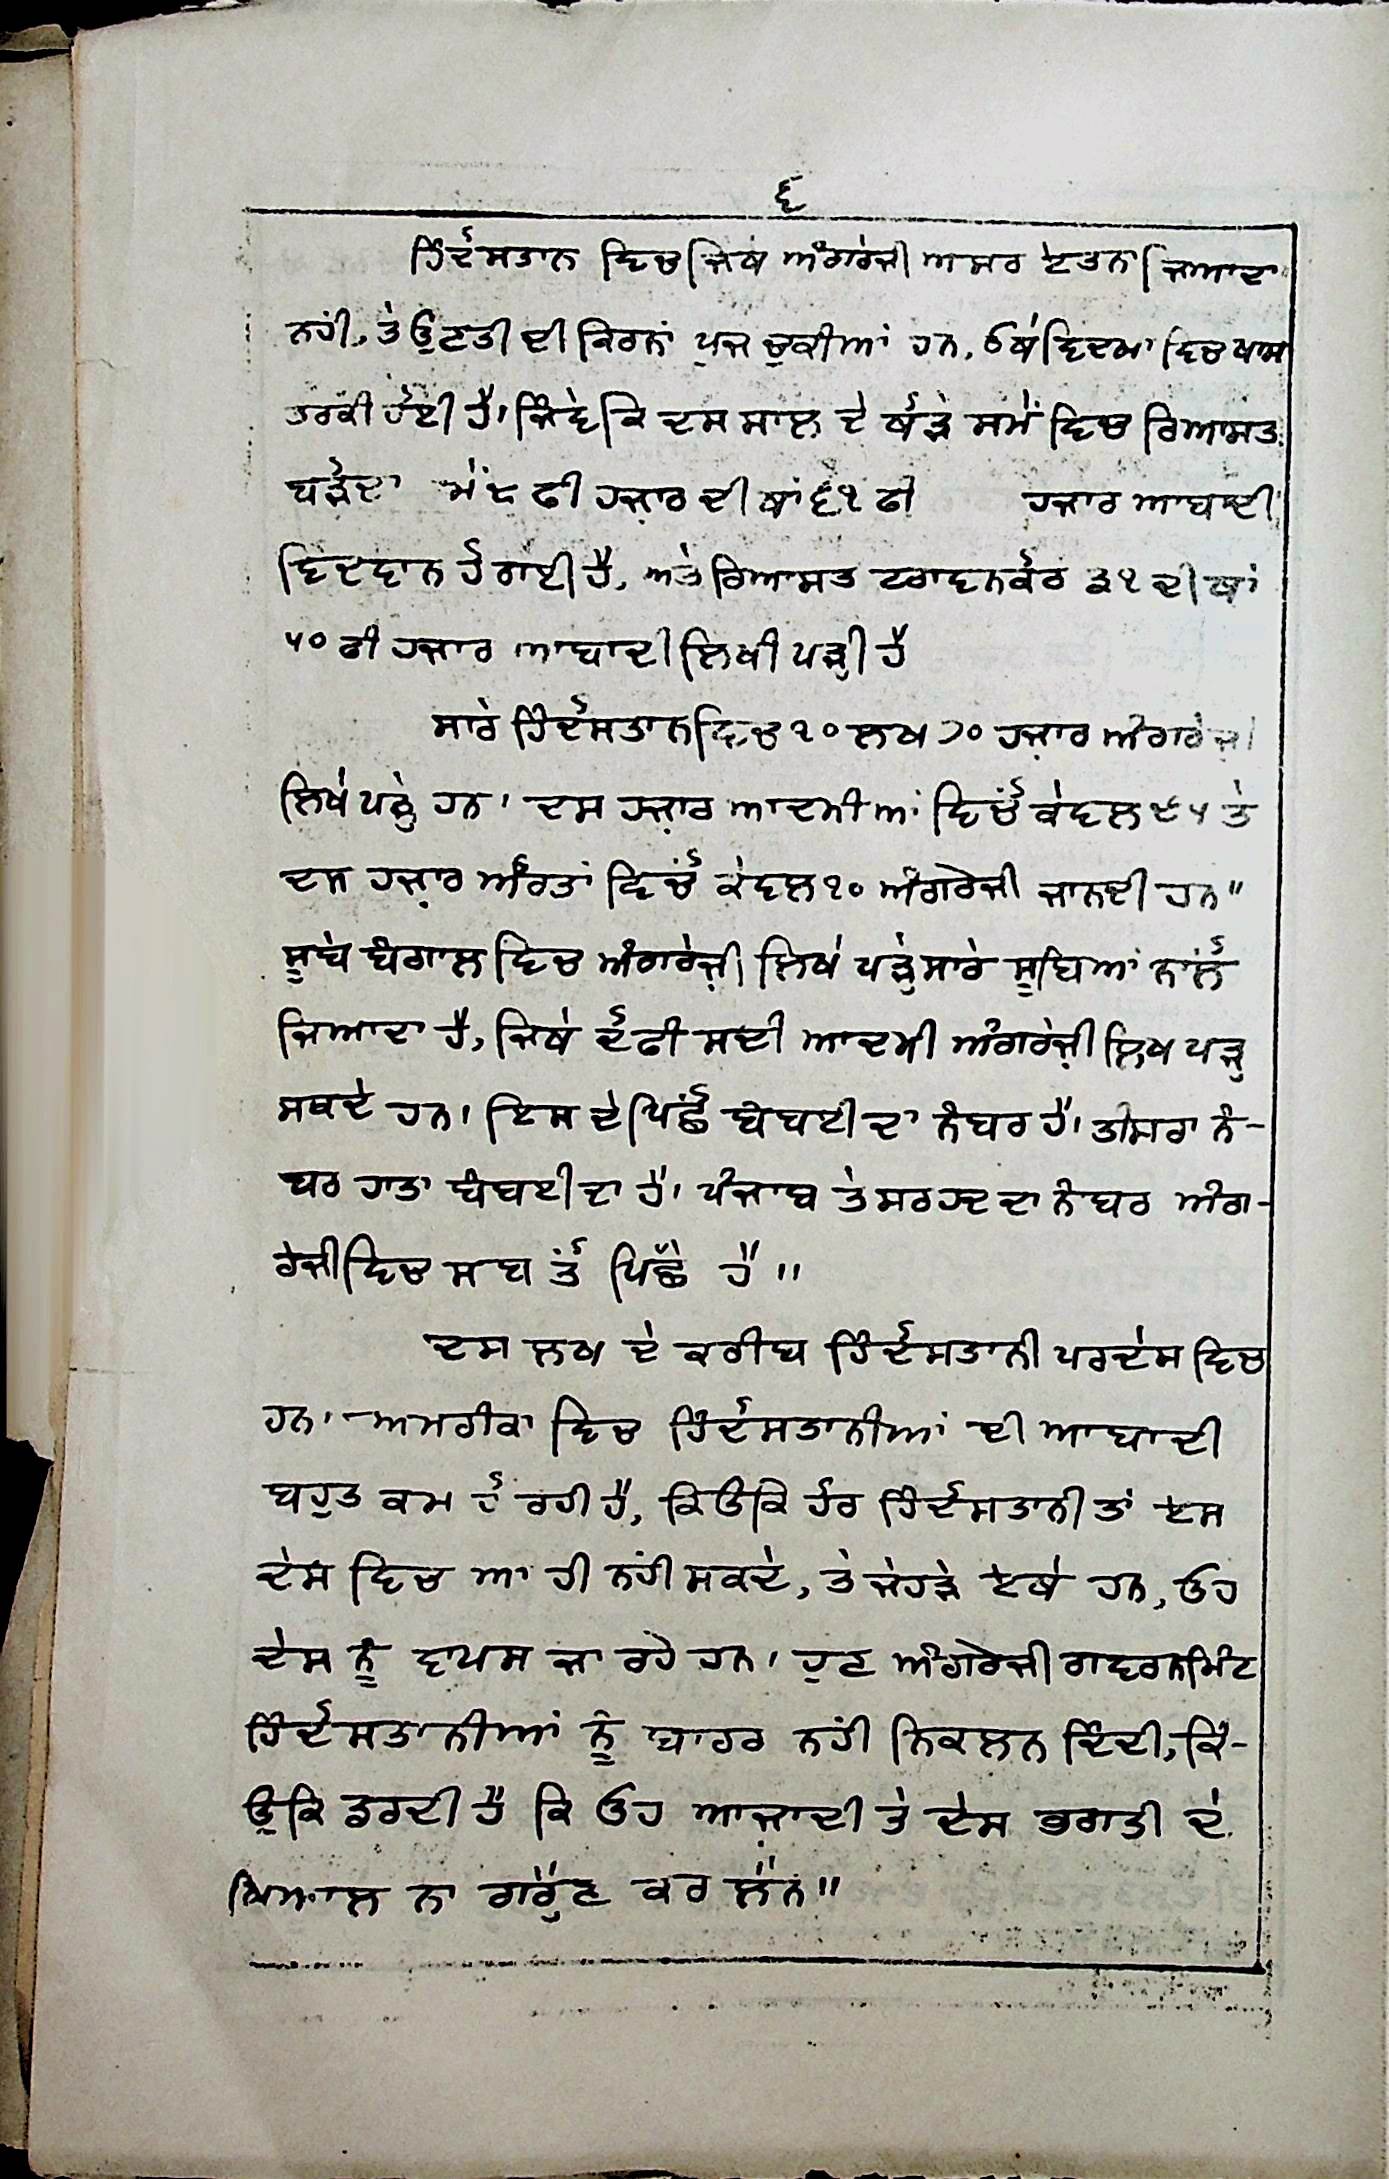 ੬
ਹਿੰਦੋਸਤਾਨ ਵਿਚ ਜਿਥੇ ਅੰਗਰੇਜ਼ੀ ਅਸਰ ਏਤਨਾ ਜਿਆਦਾ
ਨਹੀਂ, ਤੇ ਉਣਤੀ ਦੀ ਕਿਰਨਾਂ ਪੁਜ ਚੁਕੀਆਂ ਹਨ, ਓਥੇ ਵਿਦਆ ਵਿਚ ਖਾਸ
ਤਰਕੀ ਹੋਈ ਹੈ। ਜਿੰਵੇ ਕਿ ਦਸ ਸਾਲ ਦੇ ਥੋੜੇ ਸਮੇਂ ਵਿਚ ਰਿਆਸਤ
ਬੜੋਦਾ ਮੇਂ ੮ ਫੀ ਹਜ਼ਾਰ ਦੀ ਥਾਂ ੬੧ ਫੀ ਹਜਾਰ ਆਬਾਦੀ
ਵਿਦਵਾਨ ਹੋ ਗਈ ਹੈ, ਅਤੇ ਰਿਆਸਤ ਟਰਾਵਨਕੋਰ ੩੧ ਦੀ ਥਾਂ
੫੦ ਫੀ ਹਜਾਰ ਆਬਾਦੀ ਲਿਖੀ ਪੜ੍ਹੀ ਹੈ
ਸਾਰੇ ਹਿੰਦੋਸਤਾਨ ਵਿਚ ੧੦ ਲਖ ੭੦ ਹਜ਼ਾਰ ਅੰਗਰੇਜ਼ੀ
ਲਿਖੇ ਪੜ੍ਹੇ ਹਨ। ਦਸ ਹਜ਼ਾਰ ਆਦਮੀਆਂ ਵਿਚੋਂ ਕੇਵਲ ੯੫ ਤੇ
ਦਸ ਹਜ਼ਾਰ ਔਰਤਾਂ ਵਿਚੋਂ ਕੇਵਲ ੧੦ ਅੰਗਰੇਜੀ ਜਾਨਦੀ ਹਨ"
ਸੂਬੇ ਬੰਗਾਲ ਵਿਚ ਅੰਗਰੇਜ਼ੀ ਲਿਖੇ ਪੜ੍ਹੇ ਸਾਰੇ ਸੂਬਿਆਂ ਨਾਲੋਂ
ਜਿਆਦਾ ਹੈ, ਜਿਥੇ ਦੋ ਫੀ ਸਦੀ ਆਦਮੀ ਅੰਗਰੇਜ਼ੀ ਲਿਖ ਪੜ੍ਹ
ਸਕਦੇ ਹਨ। ਇਸ ਦੇ ਪਿਛੋਂ ਬੰਬਈ ਦਾ ਨੰਬਰ ਹੈ। ਤੀਸਰਾ ਨੰ-
ਬਰ ਹਾਤਾ ਬੰਬਈ ਦਾ ਹੈ। ਪੰਜਾਬ ਤੇ ਸਰਹਦ ਦਾ ਨੰਬਰ ਅੰਗ-
ਰੇਜੀ ਵਿਚ ਸਬ ਤੋਂ ਪਿੱਛੇ ਹੈ"
ਦਸ ਲਖ ਦੇ ਕਰੀਬ ਹਿੰਦੋਸਤਾਨੀ ਪਰਦੇਸ ਵਿਚ
ਹਨ। ਅਮਰੀਕਾ ਵਿਚ ਹਿੰਦੋਸਤਾਨੀਆਂ ਦੀ ਆਬਾਦੀ
ਬਹੁਤ ਕਮ ਹੋ ਰਹੀ ਹੈ, ਕਿਓਂਕਿ ਹੋਰ ਹਿੰਦੋਸਤਾਨੀ ਤਾਂ ਏਸ
ਦੇਸ ਵਿਚ ਆ ਹੀ ਨਹੀਂ ਸਕਦੇ, ਤੇ ਜੇਹੜੇ ਏਥੇ ਹਨ, ਓਹ
ਦੇਸ ਨੂੰ ਵਾਪਸ ਜਾ ਰਹੇ ਹਨ। ਹੁਣ ਅੰਗਰੇਜੀ ਗਵਰਨਮਿੰਟ
ਹਿੰਦੋਸਤਾਨੀਆਂ ਨੂੰ ਬਾਹਰ ਨਹੀਂ ਨਿਕਲਨ ਦਿੰਦੀ, ਕਿੰ-
ਊਕਿ ਡਰਦੀ ਹੈ ਕਿ ਓਹ ਆਜ਼ਾਦੀ ਤੇ ਦੇਸ ਭਗਤੀ ਦੇ
ਖਿਆਲ ਨਾ ਗਰੈਹੁਣ ਕਰ ਲੈਨ"